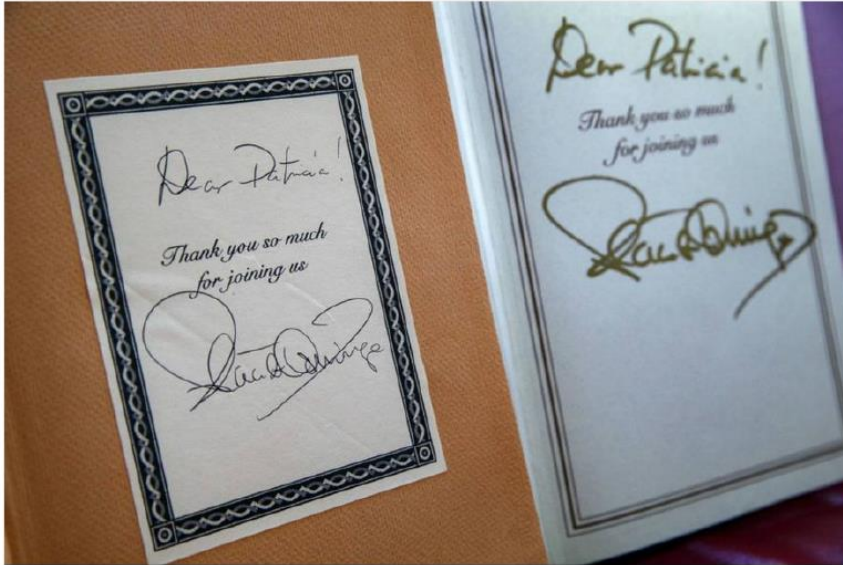 Dear Patricia!
Thank you so much
for joining us
Dear Patricia!
Thank you so much
for joining us